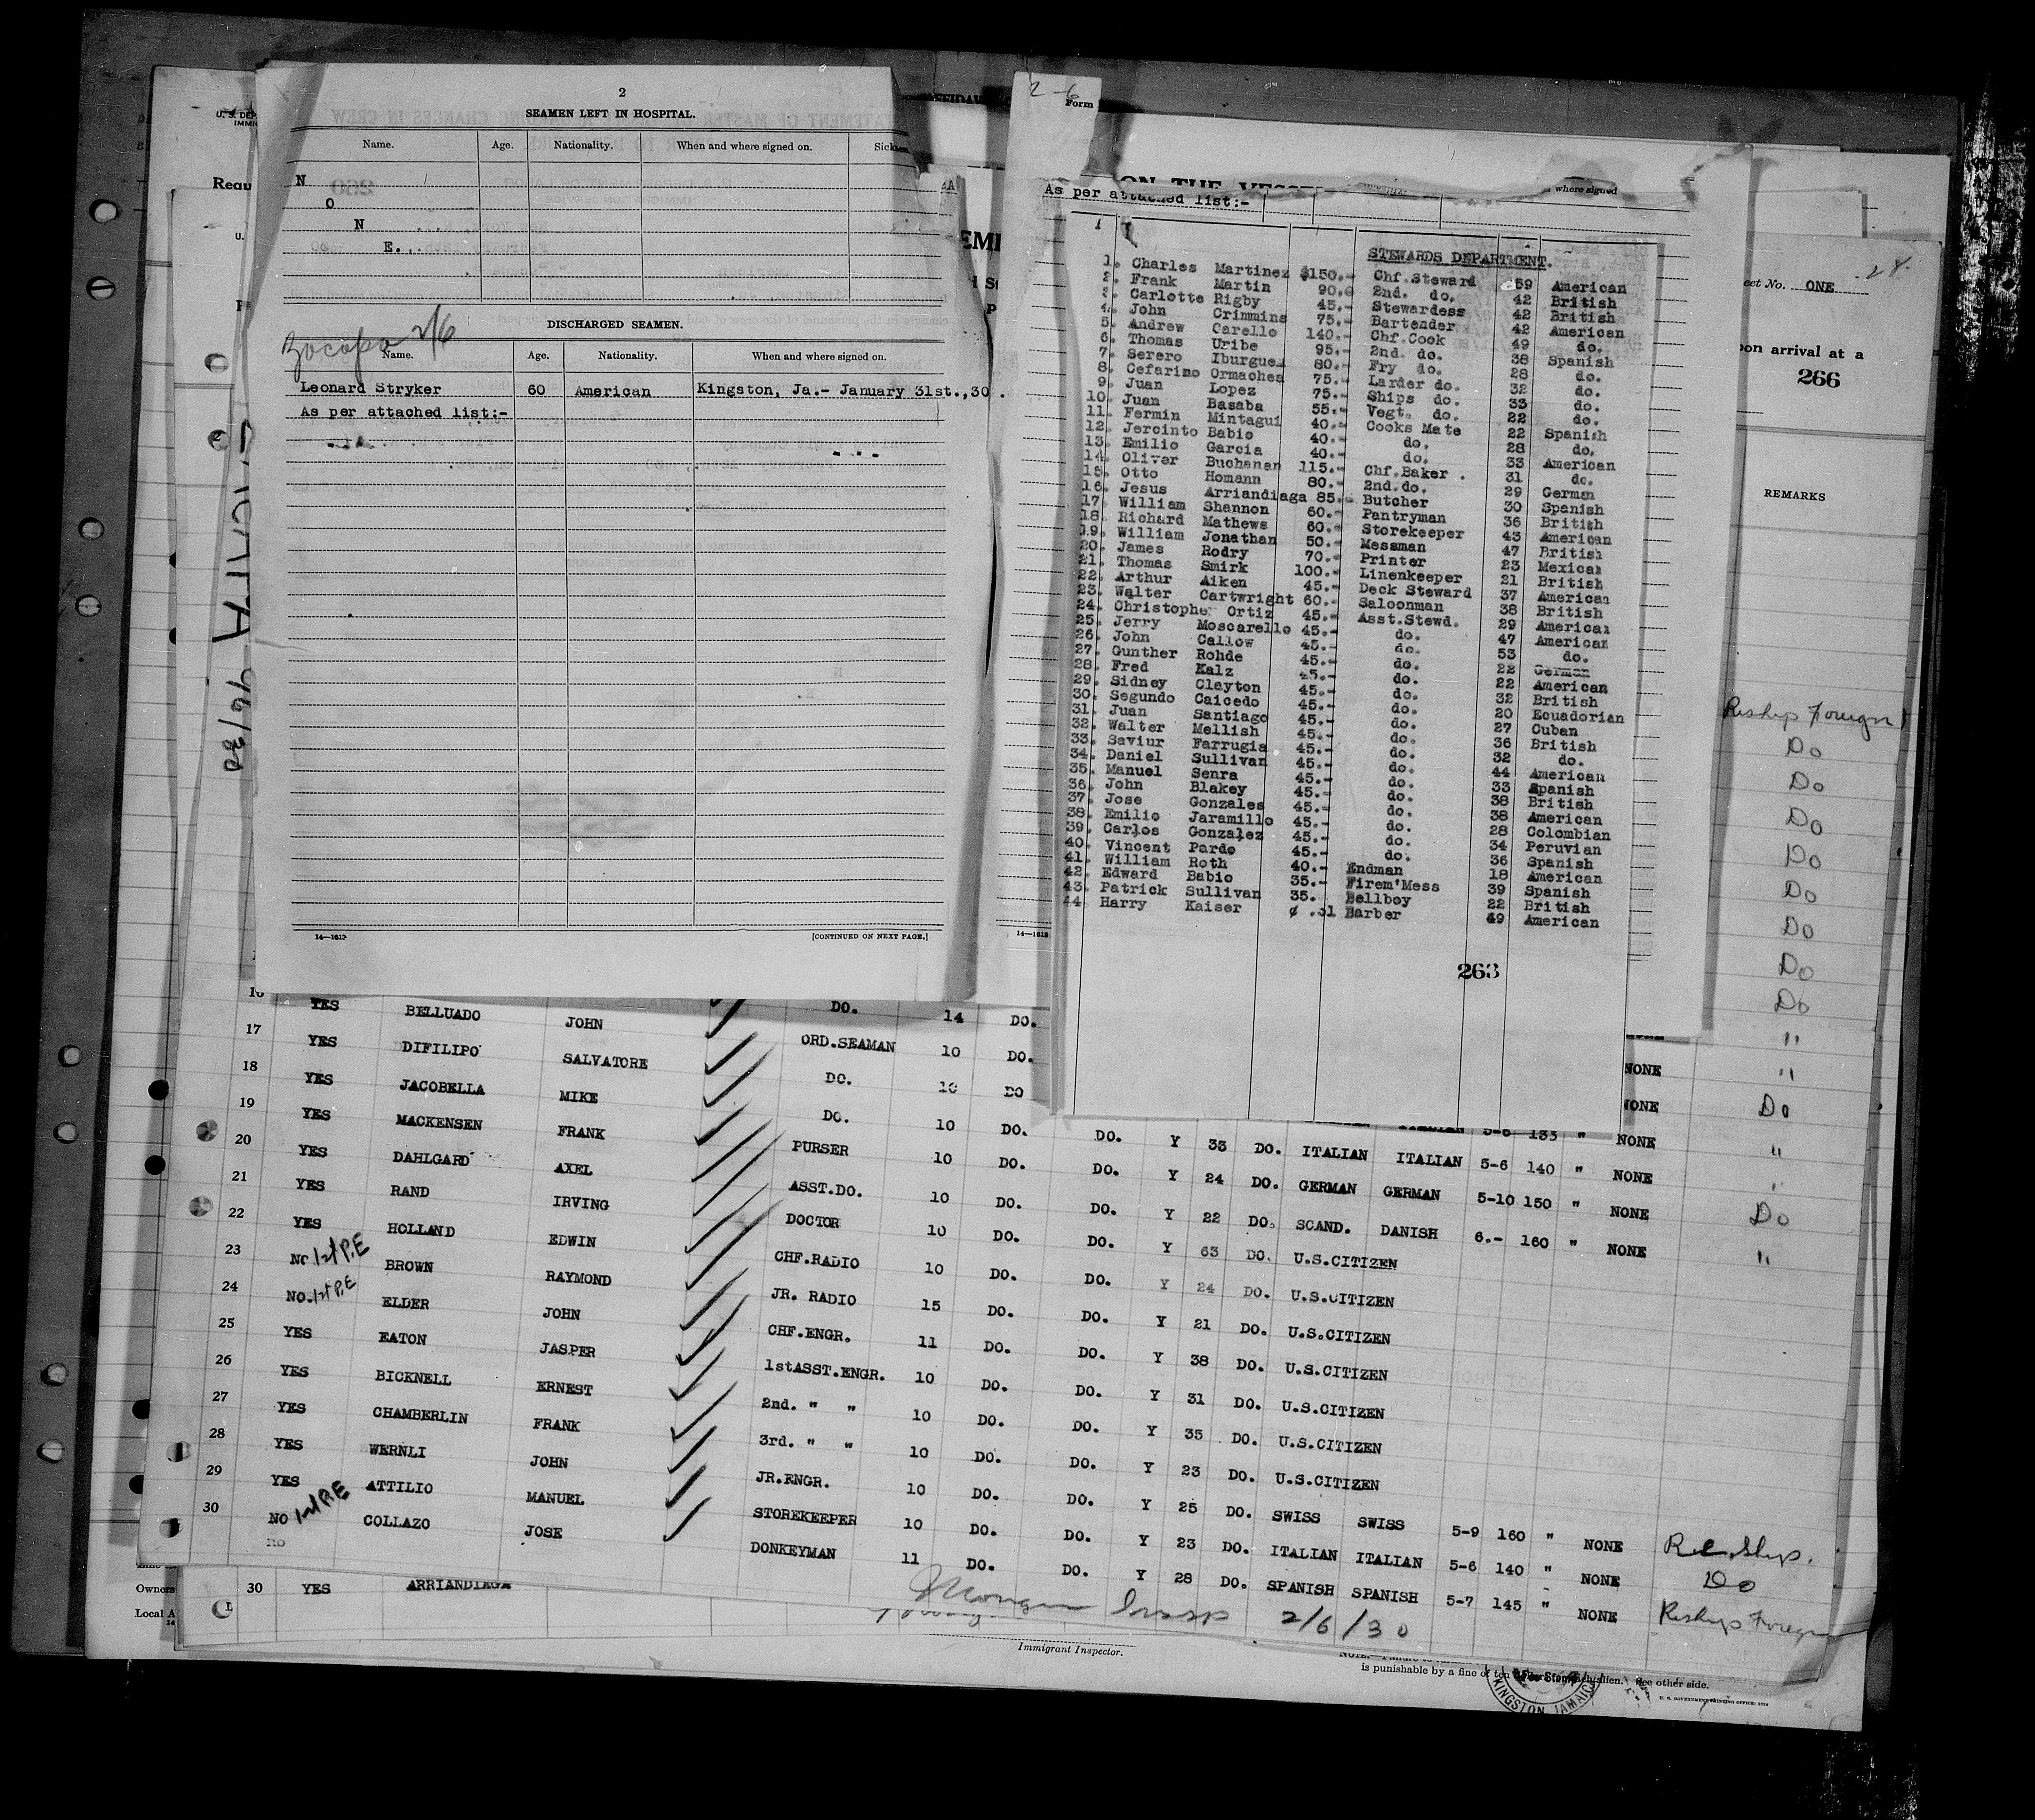 2
SEAMEN LEFT IN HOSPITAL.
Name. Age. Nationality. When and where signed on.
N
O
N
E.
Zacapa 2/6
DISCHARGED SEAMEN.
Name. Age. Nationality. When and where signed on.
Leonard Stryker 60 American Kingston, Ja.- January 31st.,30.
As per attached list:-
14—1613 [CONTINUED ON NEXT PAGE.]
2-6
Form
ON THE VESSEL
where signed
As per attached list:-
STEWARDS DEPARTMENT.
1. Charles Martinez $150.- Chf.Steward 59 American
2. Frank Martin 90.0 2nd. do. 42 British
3. Carlotte Rigby 45.- Stewardess 42 British
4. John Crimmins 75.- Bartender 42 American
5. Andrew Carello 140.- Chf.Cook 49 do.
6. Thomas Uribe 95.- 2nd. do. 38 Spanish
7. Serero Iburguez 80.- Fry do. 28 do.
8. Cefarino Ormachea 75.- Larder do. 32 do.
9. Juan Lopez 75.- Ships do. 33 do.
10. Juan Basaba 55.- Vegt. do. 22 do.
11. Fermin Mintagui 40.- Cooks Mate 22 Spanish
12. Jercinto Babio 40.- do. 28 do.
13. Emilio Garcia 40.- do. 33 American
14. Oliver Buchanan 115.- Chf.Baker . 31 do.
15. Otto Homann 80.- 2nd.do. 29 German
16. Jesus Arriandiaga 85.- Butcher 30 Spanish
17. William Shannon 60.- Pantryman 36 British
18. Richard Mathews 60.- Storekeeper 43 American
19. William Jonathan 50.- Messman 47 British
20. James Rodry 70.- Printer 23 Mexican
21. Thomas Smirk 100.- Linenkeeper 21 British
22. Arthur Aiken 45.- Deck Steward 37 American
23. Walter Cartwright 60.- Saloonman 38 British
24. Christopher Ortiz 45.- Asst.Stewd. 29 American
25. Jerry Moscarello 45.- do. 47 American
26. John Callow 45.- do. 53 do.
27. Gunther Rohde 45.- do. 22 German
28. Fred Kalz 45.- do. 22 American
29. Sidney Clayton 45.- do. 32 British
30. Segundo Caicedo 45.- do. 20 Ecuadorian
31. Juan Santiago 45.- do. 27 Cuban
32. Walter Mellish 45.- do. 36 British
33. Saviur Farrugia 45.- do. 32 do.
34. Daniel Sullivan 45.- do. 44 American
35. Manuel Senra 45.- do. 33 Spanish
36. John Blakey 45.- do. 38 British
37. Jose Gonzales 45.- do. 38 American
38. Emilio Jaramillo 45.- do. 28 Colombian
39. Carlos Gonzalez 45.- do. 34 Peruvian
40. Vincent Pardo 45.- do. 36 Spanish
41. William Roth 40.- Endman 18 American
42. Edward Babio 35.- Firem'Mess 39 Spanish
43. Patrick Sullivan 35. Bellboy 22 British
44. Harry Kaiser ¢ .01 Barber 49 American
263
14—1613
28.
eet No. ONE
on arrival at a
266
REMARKS
Reship Foreign
Do
Do
Do
Do
Do
Do
Do
Do
"
"
DO. 14 DO.
16 YES BELLUADO JOHN ORD.SEAMAN 10 DO. NONE Do
17 YES DIFILIPO SALVATORE DO. 10 DO ITALIAN 5-6 135 " NONE "
18 YES JACOBELLA MIKE DO. 10 DO. DO. Y 33 DO. ITALIAN ITALIAN 5-6 140 " NONE "
19 YES MACKENSEN FRANK PURSER 10 DO. DO. Y 24 DO. GERMAN GERMAN 5-10 150 " NONE Do
20 YES DAHLGARD AXEL ASST.DO. 10 DO. DO. Y 22 DO. SCAND. DANISH 6.- 160 " NONE "
21 YES RAND IRVING DOCTOR 10 DO. DO. Y 63 DO. U.S.CITIZEN
22 YES HOLLAND EDWIN CHF.RADIO 10 DO. DO. Y 24 DO. U.S.CITIZEN
23 NO 1st P.E BROWN RAYMOND JR. RADIO 15 DO. DO. Y 21 DO. U.S.CITIZEN
24 NO. 1st P.E ELDER JOHN CHF.ENGR. 11 DO. DO. Y 38 DO. U.S.CITIZEN
25 YES EATON JASPER 1stASST.ENGR. 10 DO. DO. Y 31 DO. U.S.CITIZEN
26 YES BICKNELL ERNEST 2nd. " " 10 DO. DO. Y 35 DO. U.S.CITIZEN
27 YES CHAMBERLIN FRANK 3rd. " " 10 DO. DO. Y 23 DO. U.S.CITIZEN
28 YES WERNLI JOHN JR.ENGR. 10 DO. DO. Y 25 DO. SWISS SWISS 5-9 160 " NONE Re.Ship.
29 YES ATTILIO MANUEL STOREKEEPER 10 DO. DO. Y 23 DO. ITALIAN ITALIAN 5-6 140 " NONE Do
30 NO 1st P.E COLLAZO JOSE DONKEYMAN 11 DO. DO. Y 28 DO. SPANISH SPANISH 5-7 145 " NONE Reship Foreign
2/6/30
30 YES ARRIANDIAGA
Owners
Local A
Immigrant Inspector.
is punishable by a fine of ten
alien. See other side.
U. S. GOVERNMENT PRINTING OFFICE
KINGSTON JAMAICA